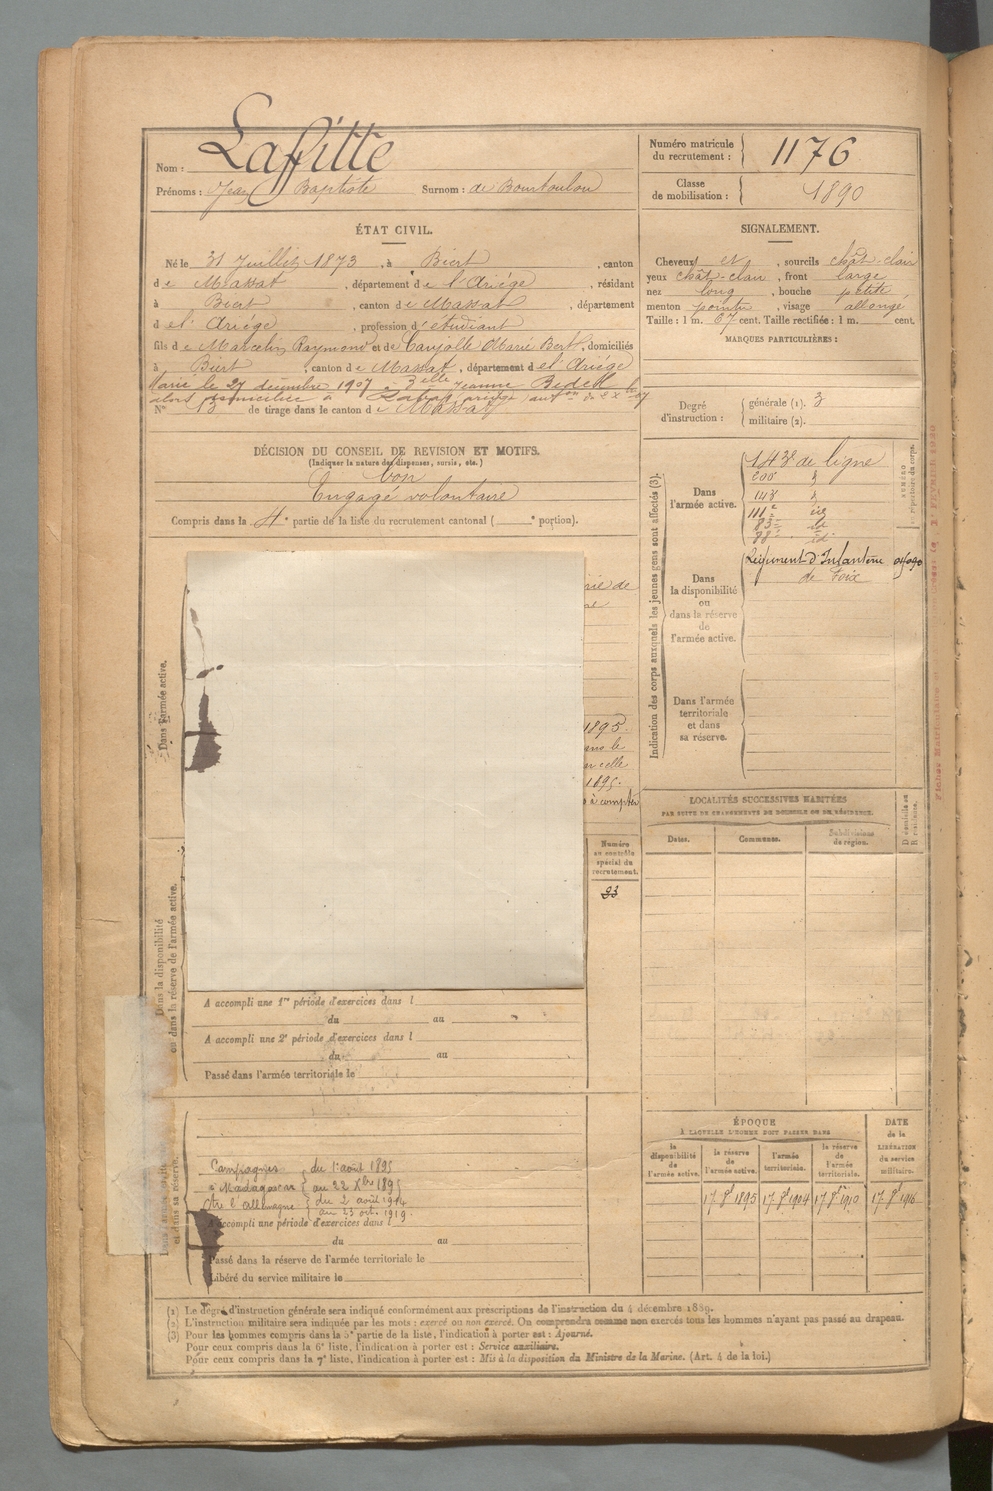 Nom : Laffitte
Prénoms : Jean Baptiste Surnom : de Bourtoulou
Numéro matricule du recrutement : 1176
Classe de mobilisation : 1890
ÉTAT CIVIL.
Né le 31 Juillet 1873, à Biert, canton
de Massat, département de l'Ariège, résidant
à Biert, canton de Massat, département
de l'Ariège, profession d'étudiant
fils de Marcelin Raymond et de Caujolle Marie Bert, domiciliés
à Biert, canton de Massat, département de l'Ariège
Marié le 27 décembre 1907 à Jeanne
alors domiciliée à
No 13 de tirage dans le canton de Massat
SIGNALEMENT.
Cheveux et, sourcils chât-clair
yeux chât-clair, front large
nez long, bouche petite
menton pointu, visage allongé
Taille : 1 m. 67 cent. Taille rectifiée : 1 m. cent.
MARQUES PARTICULIÈRES :
Degré d'instruction : générale (1). 3
militaire (2).
DÉCISION DU CONSEIL DE REVISION ET MOTIFS.
(Indiquer la nature des dispenses, sursis, etc.)
bon
Engagé volontaire
Compris dans la 4e partie de la liste du recrutement cantonal ( e portion).
Indication des corps auxquels les jeunes gens sont affectés (3).
NUMÉRO
répertoire du corps.
Dans l'armée active.
143e de ligne
200
143
111e
83e
88e
Dans la disponibilité ou dans la réserve de l'armée active.
Régiment d'Infanterie
de Foix
Dans l'armée territoriale et dans sa réserve.
Dans l'armée active.
1895.
dans le
celle
1895.
à compter
Numéro au contrôle spécial du recrutement.
93
Dans la disponibilité
ou dans la réserve de l'armée active.
A accompli une 1re période d'exercices dans l
du au
A accompli une 2e période d'exercices dans l
du au
Passé dans l'armée territoriale le
LOCALITÉS SUCCESSIVES HABITÉES
PAR SUITE DE CHANGEMENTS DE DOMICILE OU DE RÉSIDENCE.
Dates. Communes. Subdivisions de région.
D domicile ou R résidence.
Campagnes du 1er août 1895
à Madagascar au 22 Xbre 1895
Ctre l'Allemagne du 2 août 1914
au 23 oct. 1919.
A accompli une période d'exercices dans l
du au
Passé dans la réserve de l'armée territoriale le
Libéré du service militaire le
ÉPOQUE
À LAQUELLE L'HOMME DOIT PASSER DANS
la disponibilité de l'armée active.
la réserve de l'armée active.
l'armée territoriale.
la réserve de l'armée territoriale.
DATE de la LIBÉRATION du service militaire.
17 8bre 1895 17 8bre 1904 17 8bre 1910 17 8bre 1916
(1) Le degré d'instruction générale sera indiqué conformément aux prescriptions de l'instruction du 4 décembre 1889.
(2) L'instruction militaire sera indiquée par les mots : exercé ou non exercé. On comprendra comme non exercés tous les hommes n'ayant pas passé au drapeau.
(3) Pour les hommes compris dans la 5e partie de la liste, l'indication à porter est : Ajourné.
Pour ceux compris dans la 6e liste, l'indication à porter est : Service auxiliaire.
Pour ceux compris dans la 7e liste, l'indication à porter est : Mis à la disposition du Ministre de la Marine. (Art. 4 de la loi.)